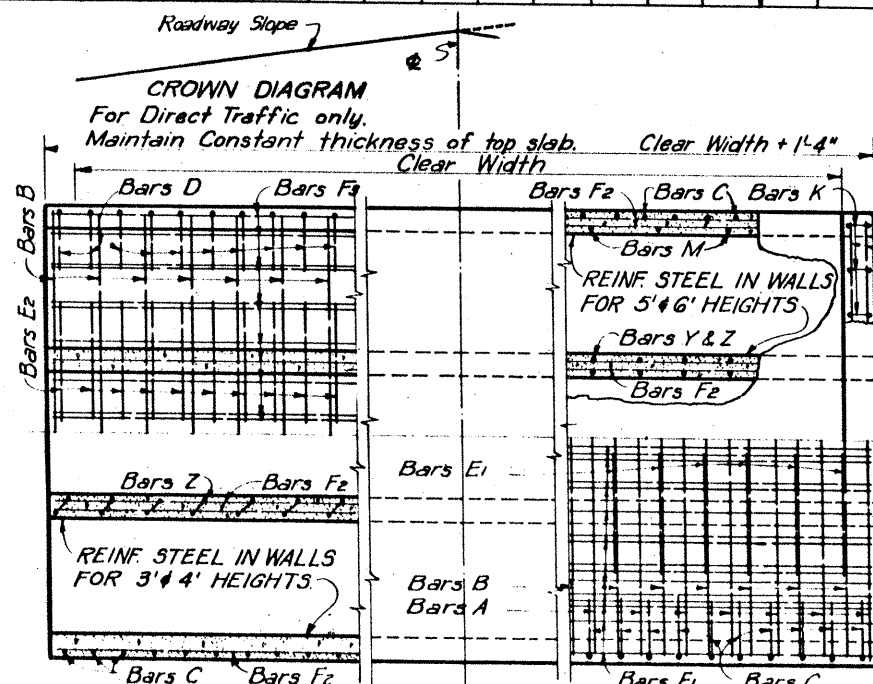 Roadway Slope
℄
CROWN DIAGRAM
For Direct Traffic only.
Maintain Constant thickness of top slab.
Clear Width + 1'-4"
Clear Width
Bars D
Bars F3
Bars F2
Bars C
Bars K
Bars B
Bars E2
Bars M
REINF. STEEL IN WALLS
FOR 5' & 6' HEIGHTS
Bars Y & Z
Bars F2
Bars E1
Bars Z
Bars F2
REINF. STEEL IN WALLS
FOR 3' & 4' HEIGHTS
Bars B
Bars A
Bars C
Bars F2
Bars F1
Bars C